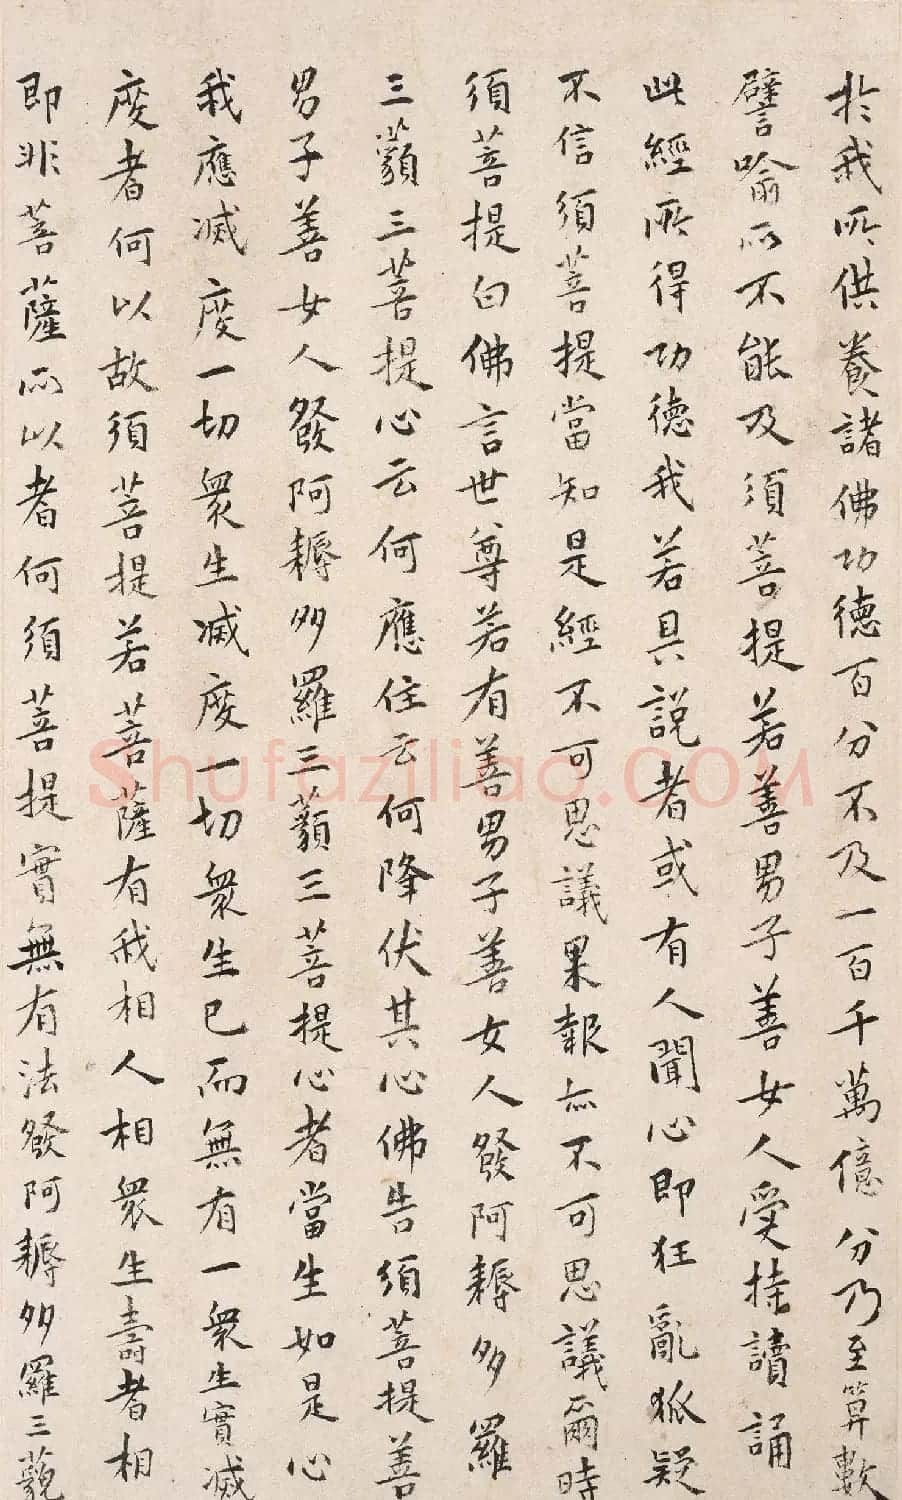 於我所供養諸佛功德百分不及一百千萬億分乃至算數
譬喻所不能及須菩提若善男子善女人受持讀誦
此經所得功德我若具說者或有人聞心即狂亂狐疑
不信須菩提當知是經不可思議果報亦不可思議爾時
須菩提白佛言世尊若有善男子善女人發阿耨多羅
三藐三菩提心云何應住云何降伏其心佛告須菩提善
男子善女人發阿耨多羅三藐三菩提心者當生如是心
我應滅度一切衆生滅度一切衆生已而無有一衆生實滅
度者何以故須菩提若菩薩有我相人相衆生壽者相
即非菩薩所以者何須菩提實無有法發阿耨多羅三藐
Shufaziliao.COM